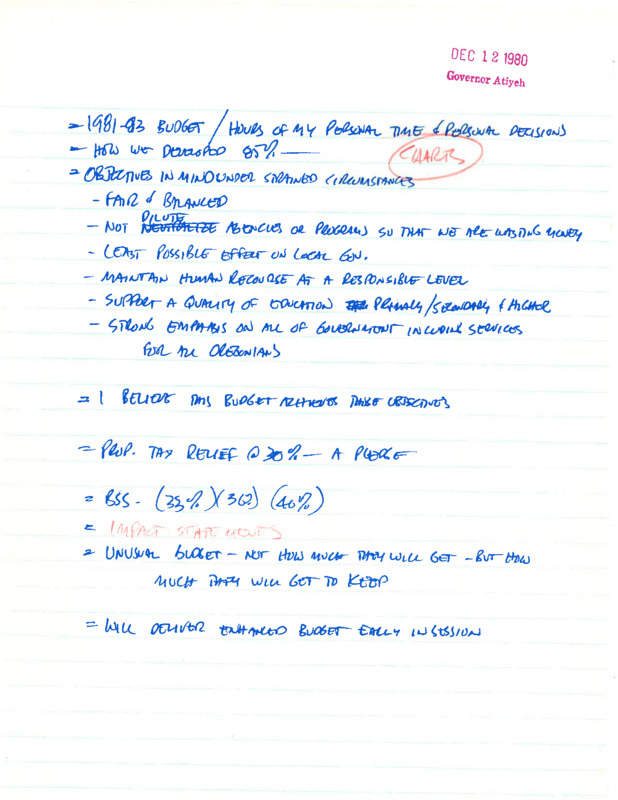 DEC 12 1980
Governor Atiyeh
= 1981-83 BUDGET / HOURS OF MY PERSONAL TIME & PERSONAL DECISIONS
= HOW WE DEVELOPED 85% —
CHARTS
= OBJECTIVES IN MIND UNDER STRAINED CIRCUMSTANCES
- FAIR & BALANCED
DILUTE
- NOT NEUTRALIZE AGENCIES OR PROGRAMS SO THAT WE ARE WASTING MONEY
- LEAST POSSIBLE EFFECT ON LOCAL GOV.
- MAINTAIN HUMAN RECOURSE AT A RESPONSIBLE LEVEL
- SUPPORT A QUALITY OF EDUCATION PRIMARY/SECONDARY & HIGHER
- STRONG EMPHASIS ON ALL OF GOVERNMENT INCLUDING SERVICES
FOR ALL OREGONIANS
= I BELIEVE THIS BUDGET ACHIEVES THOSE OBJECTIVES
= PROP. TAX RELIEF @ 30% — A PLEDGE
= BSS - (33%) (36%) (40%)
= IMPACT STATEMENTS
= UNUSUAL BUDGET - NOT HOW MUCH THEY WILL GET - BUT HOW
MUCH THEY WILL GET TO KEEP
= WILL DELIVER ENHANCED BUDGET EARLY IN SESSION